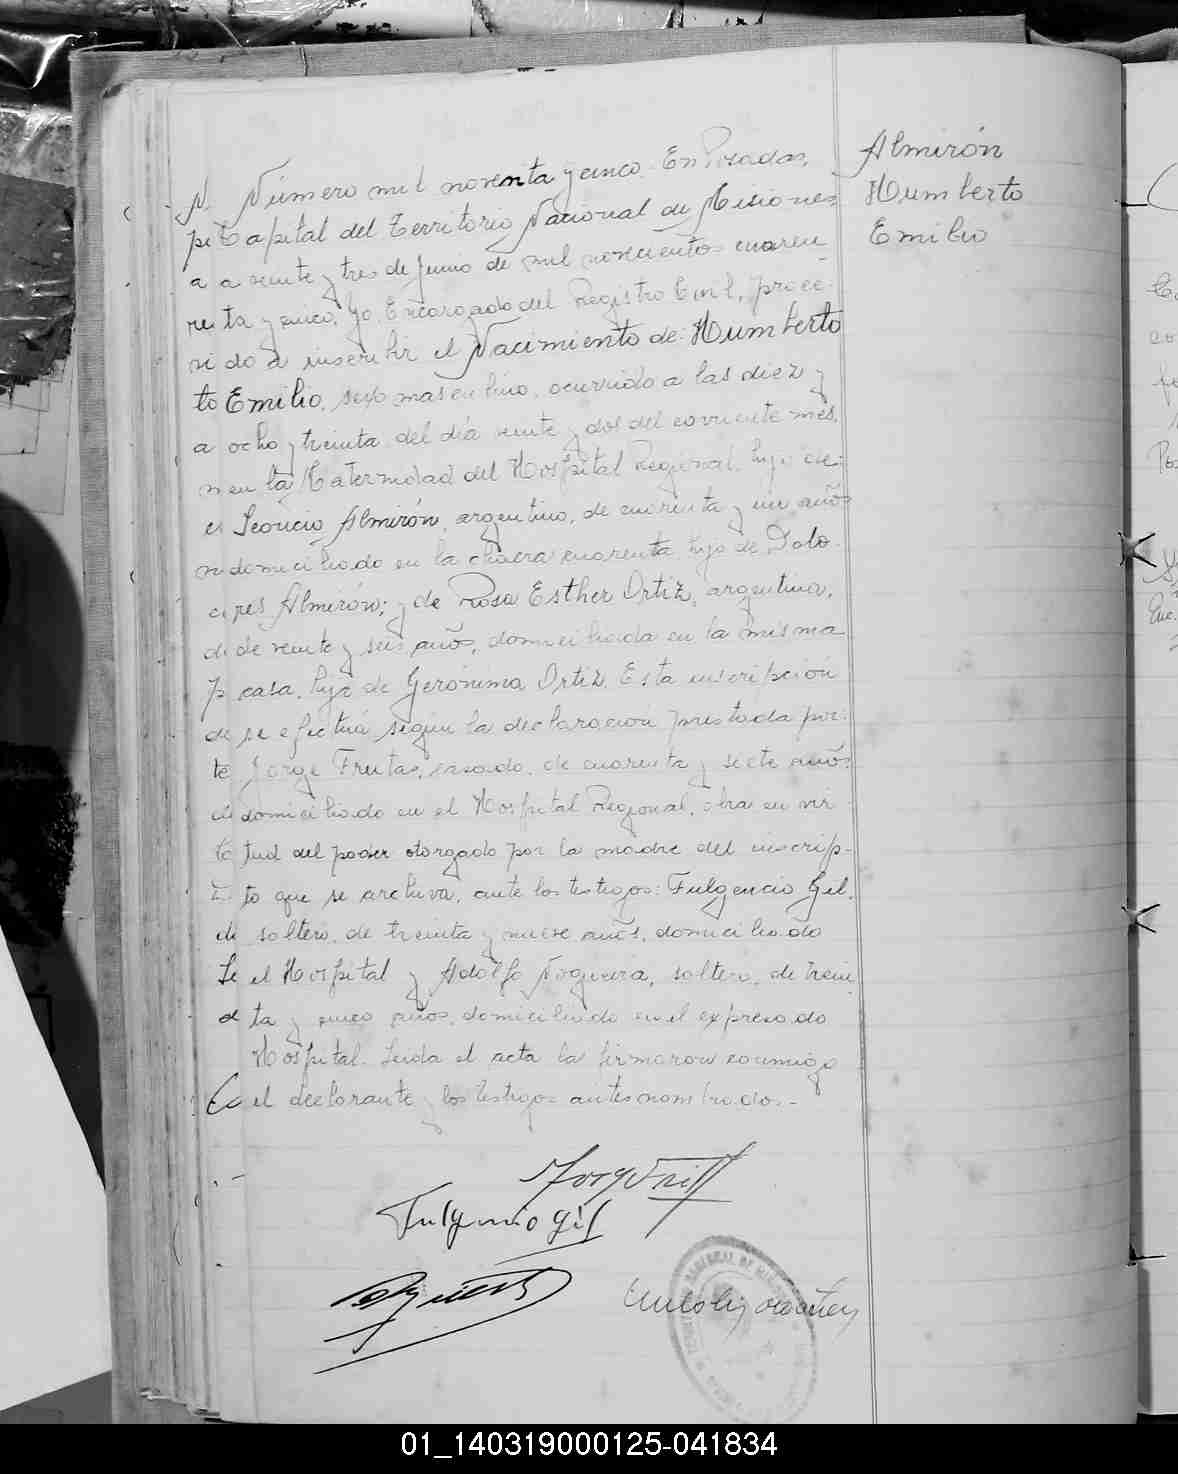 Número mil noventa y cinco. En Posadas,
Capital del Territorio Nacional de Misiones
a veinte y tres de Junio de mil novecientos cuaren
ta y cinco, Yo, Encargado del Registro Civil, proce-
do a inscribir el Nacimiento de: Humberto
Emilio, sexo masculino, ocurrido a las diez y
ocho y treinta del día veinte y dos del corriente mes,
en la Maternidad del Hospital Regional, hijo de:
Leoncio Almirón, argentino, de cuarenta y un años
domiciliado en la chacra cuarenta, hijo de Dolo-
res Almirón; y de Rosa Esther Ortiz, argentina,
de veinte y seis años, domiciliada en la misma
casa, hija de Gerónima Ortiz. Esta inscripción
se efectuá según la declaración prestada por:
Jorge Frutas, casado, de cuarenta y siete años
domiciliado en el Hospital Regional, obra en vir
tud del poder otorgado por la madre del inscrip-
to que se archiva, ante los testigos: Fulgencio Gil,
soltero, de treinta y nueve años, domiciliado
el Hospital y Adolfo Nogueira, soltero, de trein
ta y cinco años, domiciliado en el expresado
Hospital. Leida el acta la firmaron conmigo
el declarante y los testigos antes nombrados.-
Almirón
Humberto
Emilio
Fulgencio Gil
01_140319000125-041834